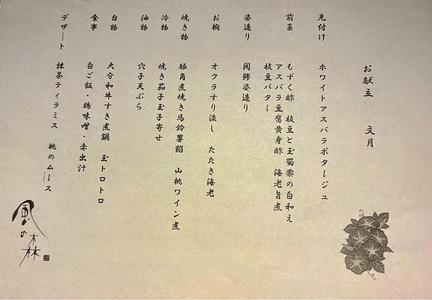 お献立　文月
先付け　ホワイトアスパラポタージュ
前菜　もずく酢　枝豆と玉蜀黍の白和え
アスパラ豆腐黄身酢　海老旨煮
枝豆バター
姿造り　間鯵姿造り
お椀　オクラすり流し　たたき海老
焼き物　豚角煮焼き馬鈴薯餡　山桃ワイン煮
冷物　焼き茄子玉子寄せ
油物　穴子天ぷら
台物　大分和牛すき煮鍋　玉トロトロ
食事　白ご飯・鶏味噌・赤出汁
デザート　抹茶ティラミス　桃のムース
風の森